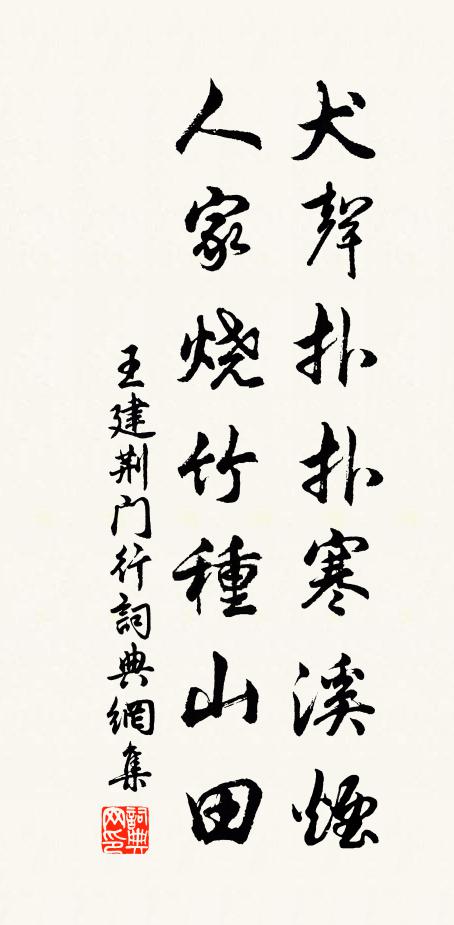 犬聲扑扑寒溪煙
人家烧竹種山田
王建荆门行詞典網集
詞典网印